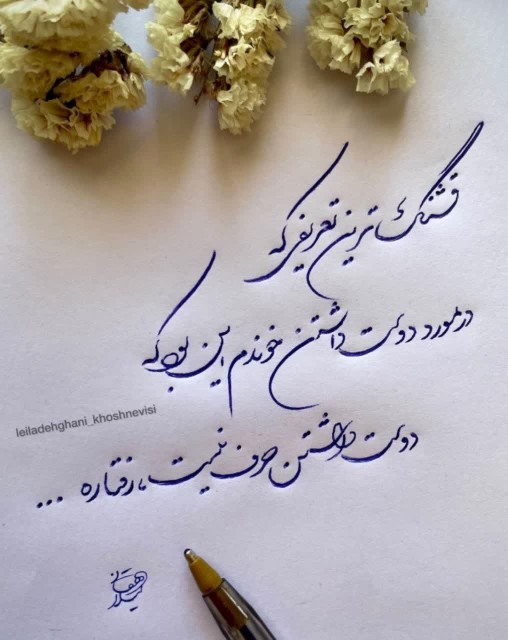 قشنگ ترین تعریفی که
در مورد دوست داشتن خوندم این بود که
leiladehghani_khoshnevisi
دوست داشتن حرف نیست، رفتاره ...
لیلا دهقانی